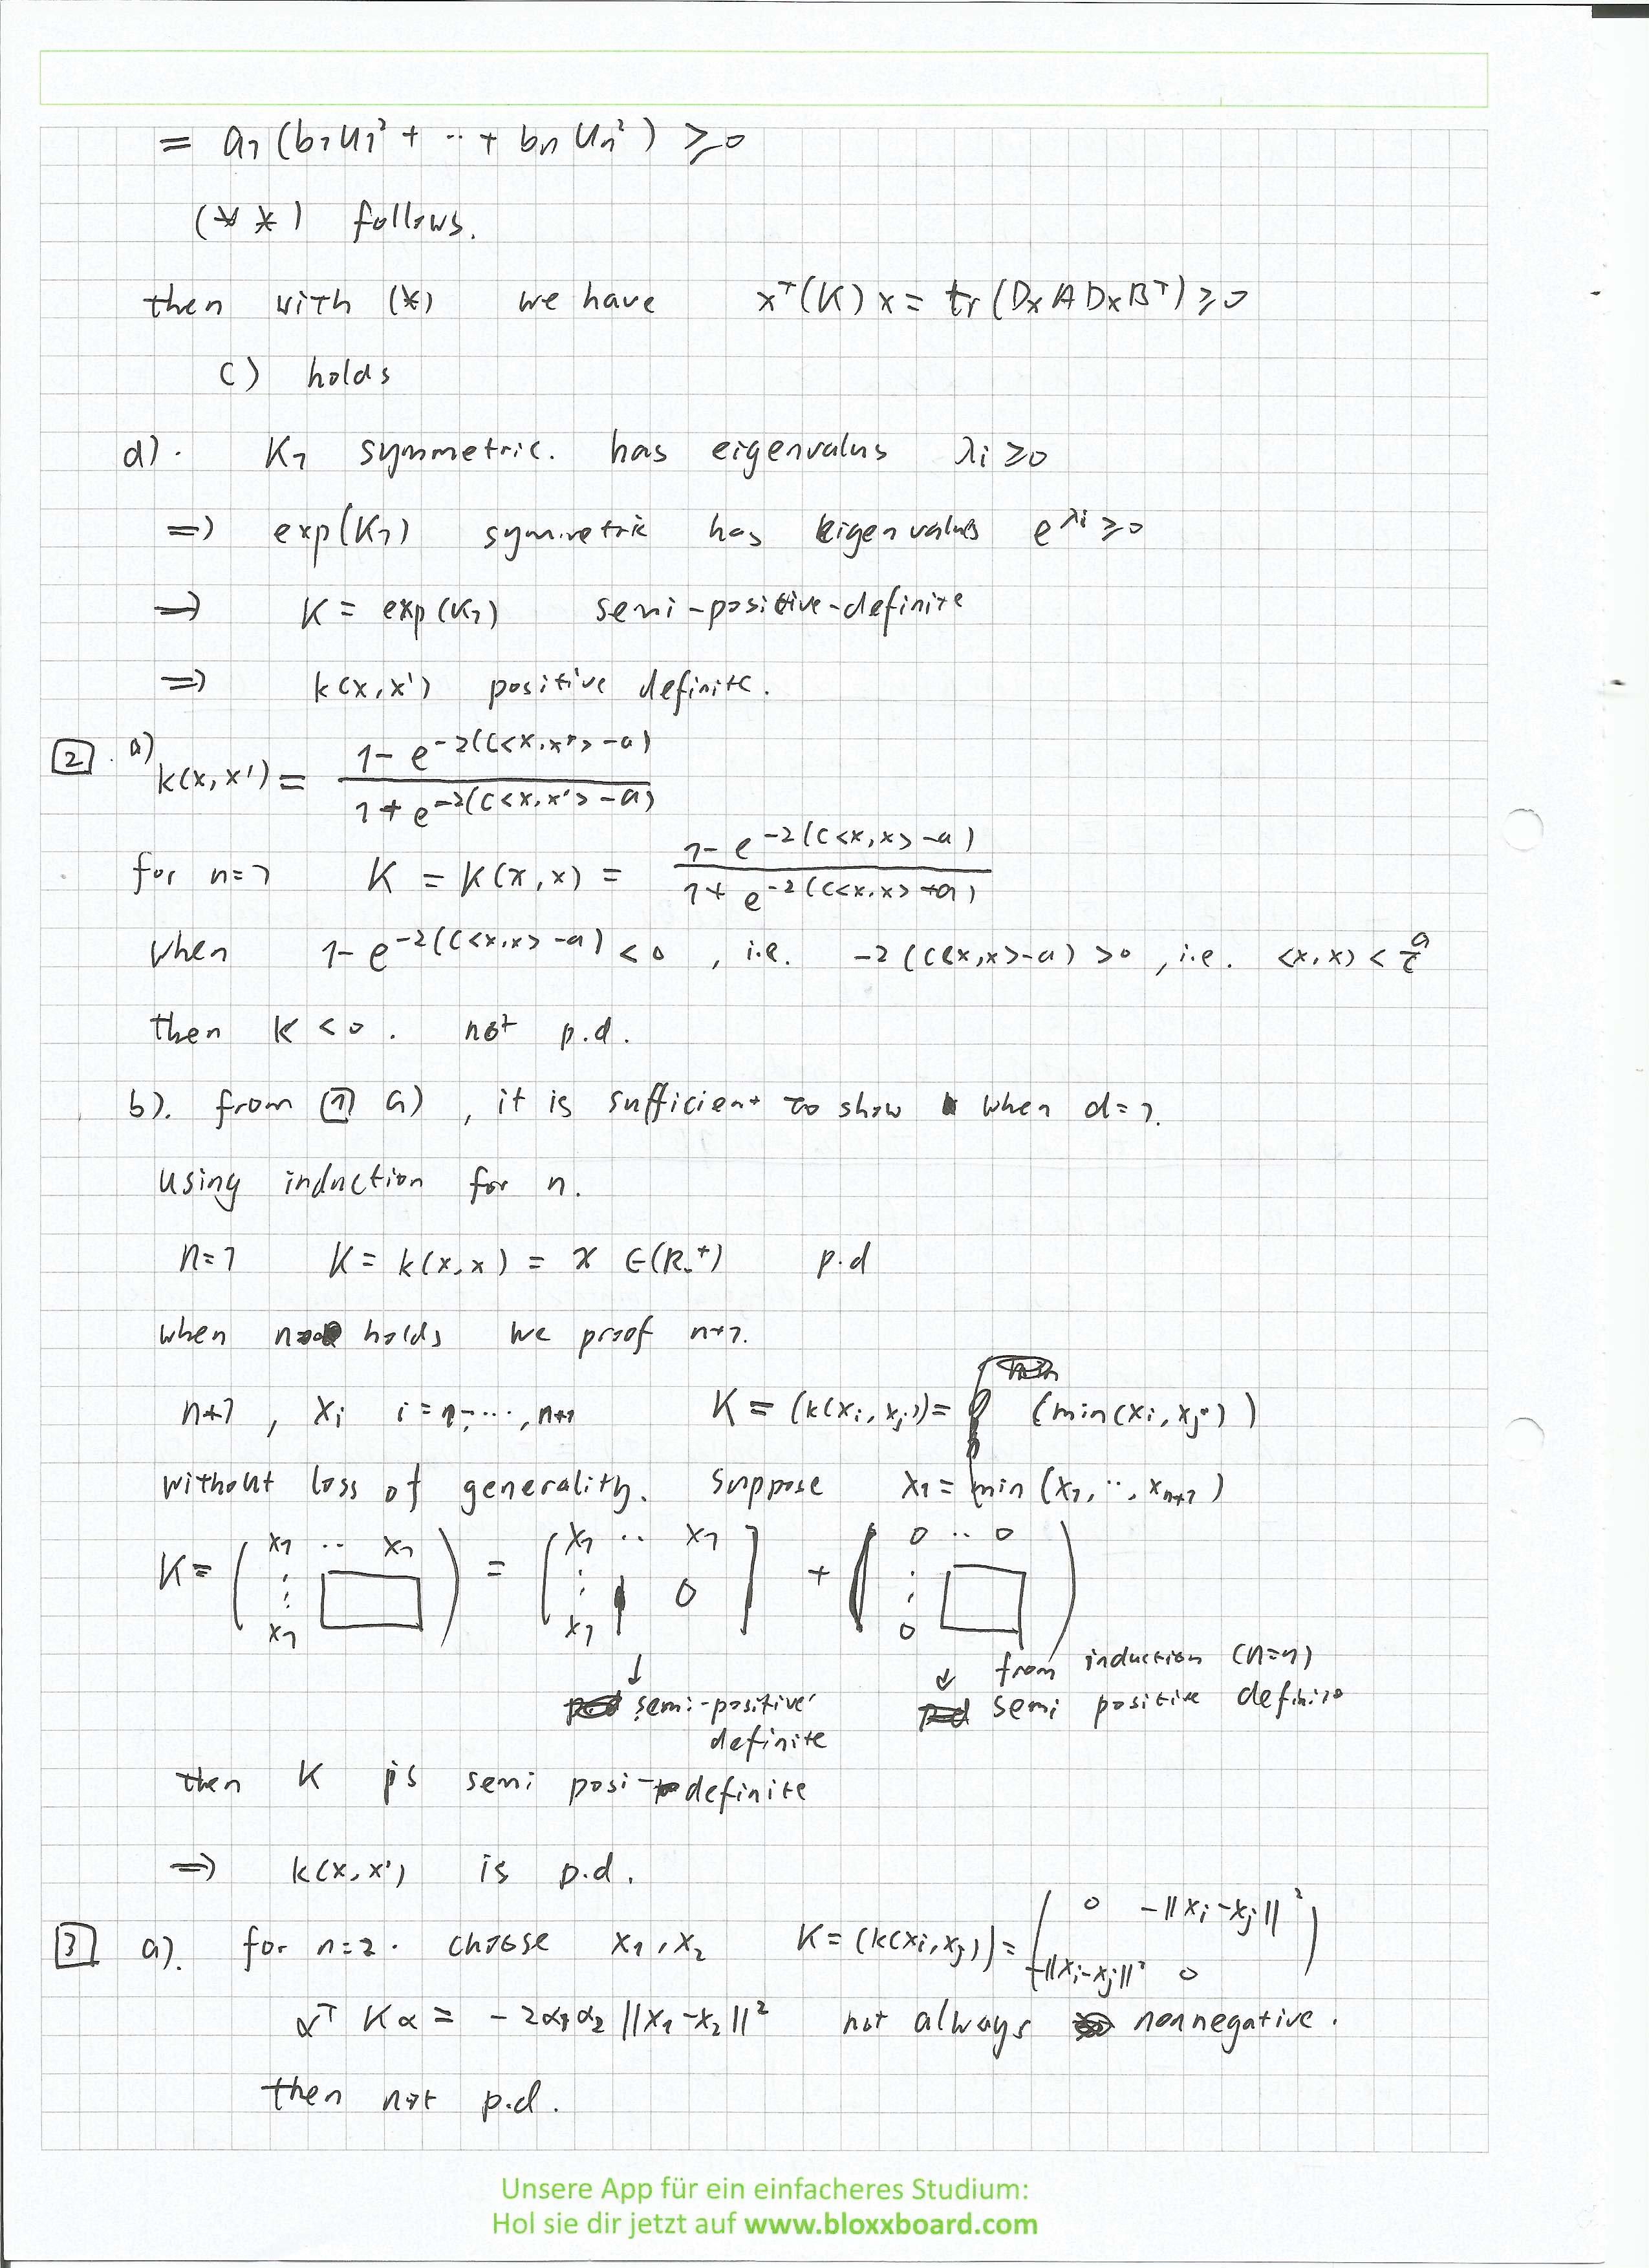 = a₁ (b₁u₁² + ·· + bₙ uₙ²) ≥ 0
(**) follows.
then with (*) we have xᵀ(K)x = tr(DₓADₓBᵀ) ≥ 0
c) holds
d). K₁ symmetric. has eigenvalus λᵢ ≥ 0
=> exp(K₁) symmetric has eigenvalues e^λᵢ ≥ 0
=> K = exp(K₁) semi-positive-definite
=> k(x,x') positive definite.
2. a) k(x,x') = (1 - e^-2(c<x,x'>-a)) / (1 + e^-2(c<x,x'>-a))
for n=1 K = K(x,x) = (1 - e^-2(c<x,x>-a)) / (1 + e^-2(c<x,x>+a))
when 1 - e^-2(c<x,x>-a) < 0 , i.e. -2(c<x,x>-a) > 0 , i.e. <x,x> < a/c
then K < 0 . not p.d.
b). from 1 a) , it is sufficient to show when d=1.
using induction for n.
n=1 K = k(x,x) = x ∈(R₊) p.d
when n holds we proof n+1.
n+1 , xᵢ i = 1,···,n+1 K = (k(xᵢ,xⱼ)) = (min(xᵢ,xⱼ))
without loss of generality. suppose x₁ = min(x₁,··,xₙ₊₁)
K = ( x₁ ·· x₁ ⋮ x₁ ) = [ x₁ ·· x₁ ⋮ 0 x₁ ] + ( 0 ·· 0 ⋮ 0 )
↓ ↓ from induction (n=n)
semi-positive definite semi positive definite
then K is semi posi-definite
=> k(x,x') is p.d.
3 a). for n=2. choose x₁,x₂ K = (k(xᵢ,xⱼ)) = ( 0 -||xᵢ-xⱼ||² -||xᵢ-xⱼ||² 0 )
αᵀKα = -2α₁α₂||x₁-x₂||² not always nonnegative.
then not p.d.
Unsere App für ein einfacheres Studium:
Hol sie dir jetzt auf www.bloxxboard.com